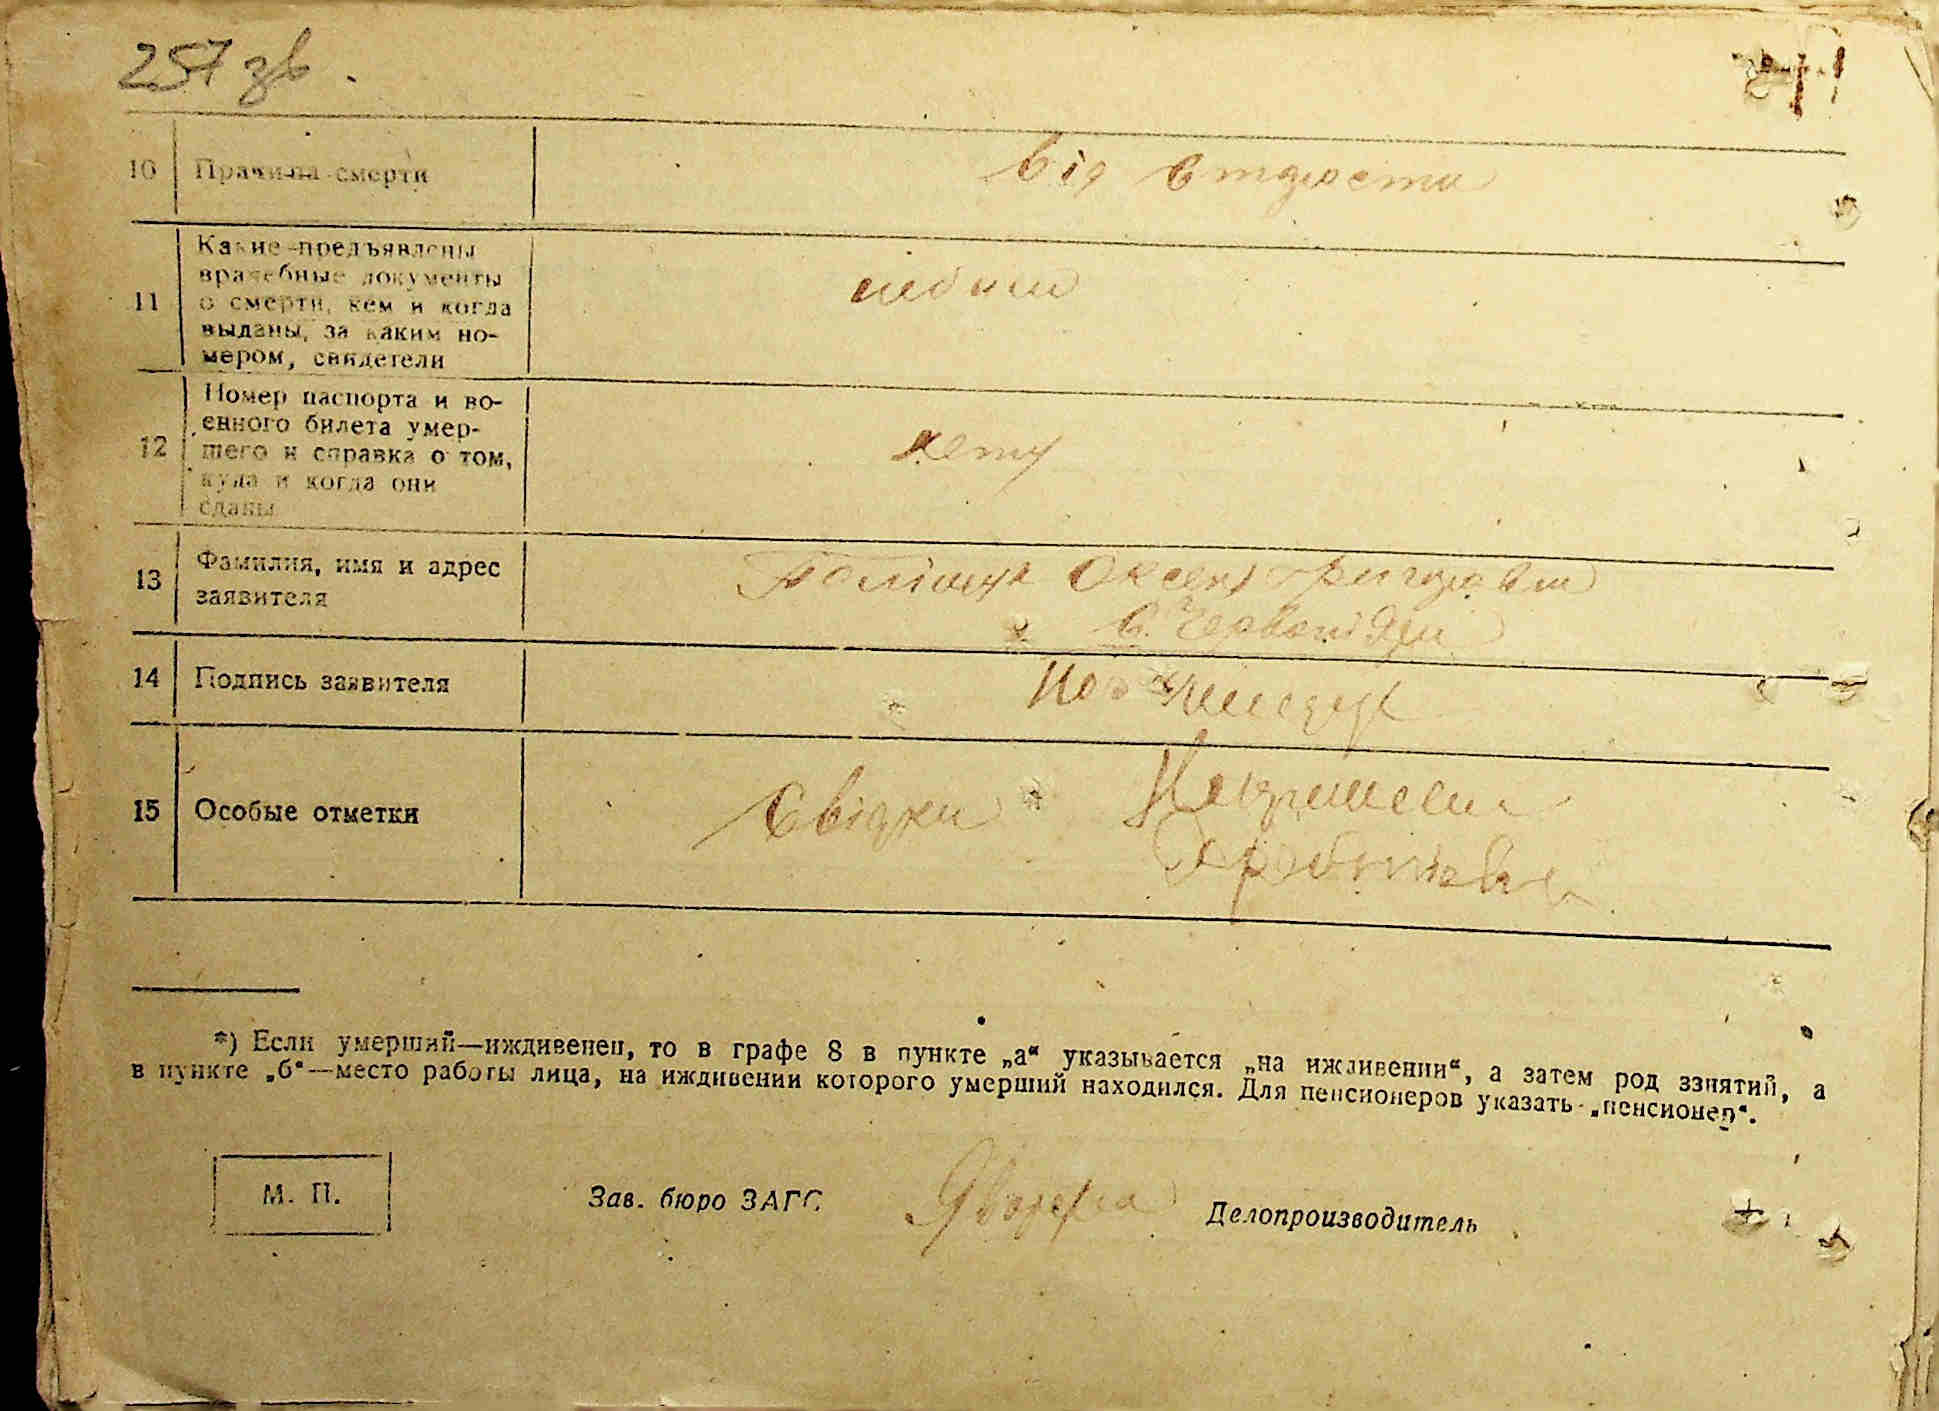 257 зв.
10 Причина смерти
від старости
11 Какие предъявлены
врачебные документы
о смерти, кем и когда
выданы, за каким но-
мером, свидетели
12 Номер паспорта и во-
енного билета умер-
шего и справка о том,
куда и когда они
сданы
нету
13 Фамилия, имя и адрес
заявителя
Поліщук Оксент Григорович
с.
14 Подпись заявителя
15 Особые отметки
Свідки
*) Если умерший—иждивенец, то в графе 8 в пункте „а“ указывается „на иждивении“, а затем род занятий, а
в пункте „б“—место работы лица, на иждивении которого умерший находился. Для пенсионеров указать „пенсионер“.
М. П.
Зав. бюро ЗАГС
Делопроизводитель